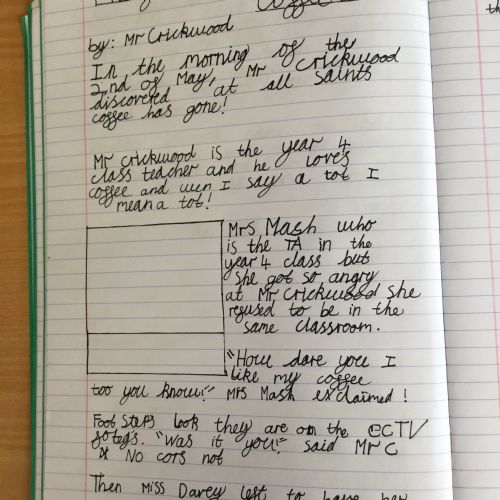 Coffee
by: Mr Crickwood
In the morning of the
2nd of May, Mr Crickwood
discovered at all saints
coffee has gone!
Mr crickwood is the year 4
class teacher and he loves
coffee and wen I say a tot I
mean a tot!
Mrs Mash who
is the TA in the
year 4 class but
she got so angry
at Mr Crickwood she
refused to be in the
same classroom.
"How dare you I
like my coffee
too you know!" Mrs Mash exclaimed!
Foot steps look they are on the CCTV
"Was it you!" said Mr C
No cors not
Then Miss Darey left to have her